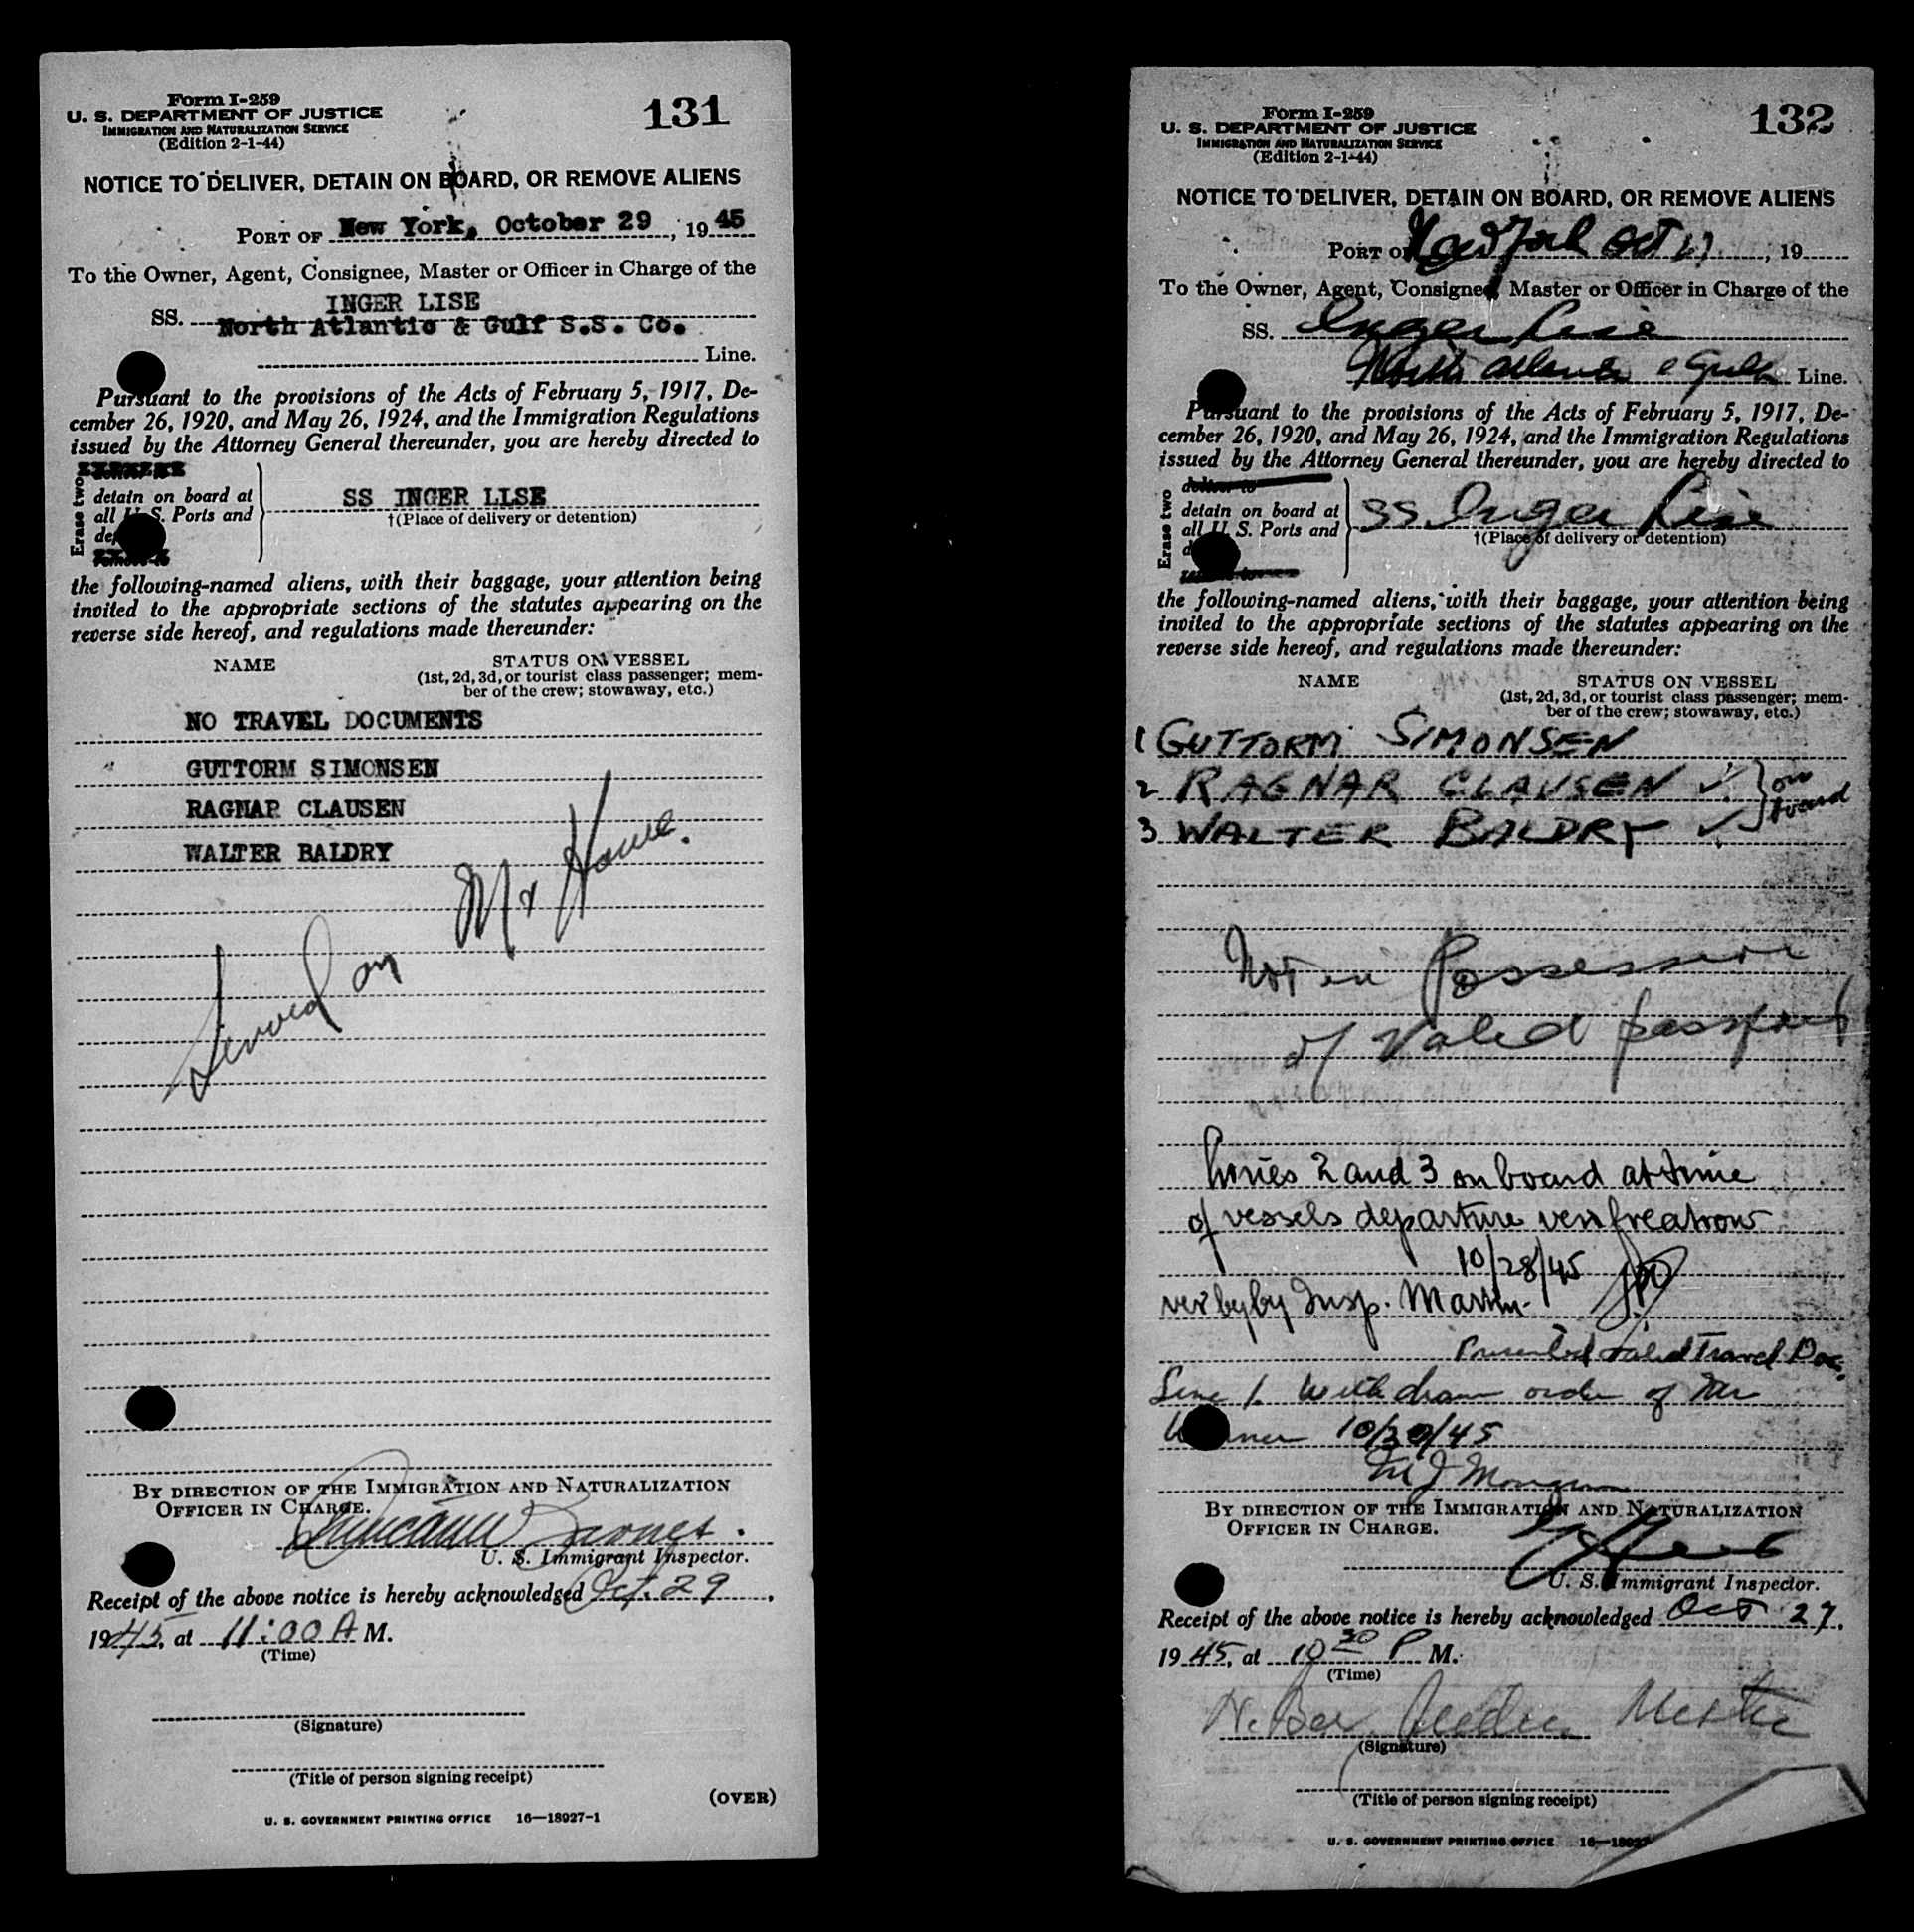 Form I-259
U. S. DEPARTMENT OF JUSTICE
IMMIGRATION AND NATURALIZATION SERVICE
(Edition 2-1-44)
131
NOTICE TO DELIVER, DETAIN ON BOARD, OR REMOVE ALIENS
PORT OF New York, October 29, 1945
To the Owner, Agent, Consignee, Master or Officer in Charge of the
INGER LISE
SS. North Atlantic & Gulf S.S. Co.
Line.
Pursuant to the provisions of the Acts of February 5, 1917, De-
cember 26, 1920, and May 26, 1924, and the Immigration Regulations
issued by the Attorney General thereunder, you are hereby directed to
Erase two
detain on board at
all U. S. Ports and
SS INGER LISE
†(Place of delivery or detention)
remove to
the following-named aliens, with their baggage, your attention being
invited to the appropriate sections of the statutes appearing on the
reverse side hereof, and regulations made thereunder:
NAME
STATUS ON VESSEL
(1st, 2d, 3d, or tourist class passenger; mem-
ber of the crew; stowaway, etc.)
NO TRAVEL DOCUMENTS
GUTTORM SIMONSEN
RAGNAR CLAUSEN
WALTER BALDRY
Served on Mr Howe.
BY DIRECTION OF THE IMMIGRATION AND NATURALIZATION
OFFICER IN CHARGE.
U. S. Immigrant Inspector.
Receipt of the above notice is hereby acknowledged Oct. 29,
1945, at 11:00 A M.
(Time)
(Signature)
(Title of person signing receipt)
(OVER)
U. S. GOVERNMENT PRINTING OFFICE 16—18927-1
Form I-259
U. S. DEPARTMENT OF JUSTICE
IMMIGRATION AND NATURALIZATION SERVICE
(Edition 2-1-44)
132
NOTICE TO DELIVER, DETAIN ON BOARD, OR REMOVE ALIENS
PORT OF New York Oct 27, 19
To the Owner, Agent, Consignee, Master or Officer in Charge of the
SS. Inger Lise
North Atlantic & Gulf Line.
Pursuant to the provisions of the Acts of February 5, 1917, De-
cember 26, 1920, and May 26, 1924, and the Immigration Regulations
issued by the Attorney General thereunder, you are hereby directed to
Erase two
deliver to
detain on board at
all U. S. Ports and
SS Inger Lise
†(Place of delivery or detention)
remove to
the following-named aliens, with their baggage, your attention being
invited to the appropriate sections of the statutes appearing on the
reverse side hereof, and regulations made thereunder:
NAME
STATUS ON VESSEL
(1st, 2d, 3d, or tourist class passenger; mem-
ber of the crew; stowaway, etc.)
1 GUTTORM SIMONSEN
2 RAGNAR CLAUSEN ✓ on
3 WALTER BALDRY ✓ board
Not in Possession
of Valid passport
Lines 2 and 3 on board at time
of vessels departure verification
10/28/45
by Insp. Martin.
Presented valid Travel Doc.
Line 1. Withdrawn order of Mr
10/30/45
BY DIRECTION OF THE IMMIGRATION AND NATURALIZATION
OFFICER IN CHARGE.
U. S. Immigrant Inspector.
Receipt of the above notice is hereby acknowledged Oct 27,
1945, at 10 30 P M.
(Time)
(Signature)
(Title of person signing receipt)
U. S. GOVERNMENT PRINTING OFFICE